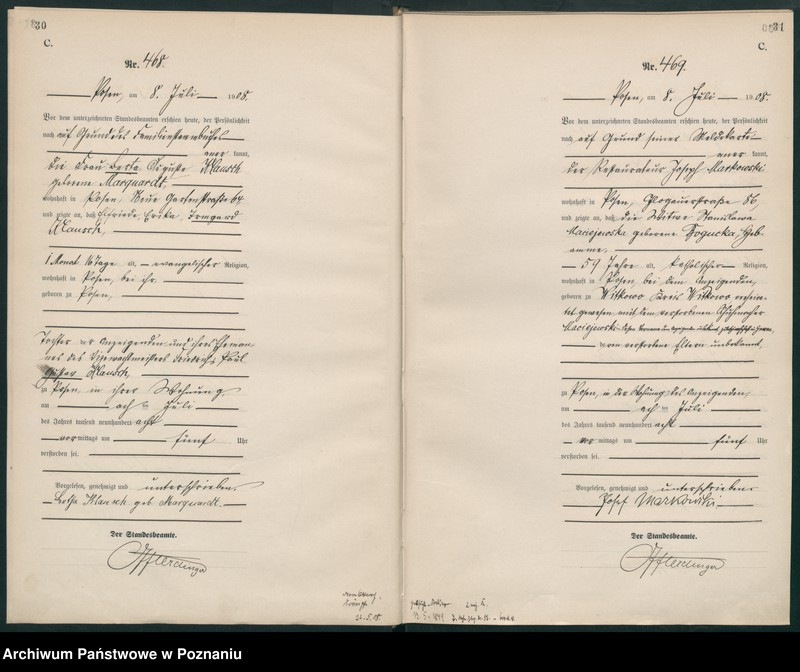 30
C.
Nr. 468.
Posen, am 8. Juli 1908.
Vor dem unterzeichneten Standesbeamten erschien heute, der Persönlichkeit
nach auf Grund des Familienstammbuches
kannt,
die Frau Berta Auguste Klausch
geborene Marquardt,
wohnhaft in Posen, Neue Gartenstraße 64
und zeigte an, daß Elfriede Erika Irmgard
Klausch,
1 Monat 16 Tage alt, evangelischer Religion,
wohnhaft in Posen, bei ihr,
geboren zu Posen,
Tochter der Anzeigenden und ihres Eheman-
nes des Vizewachtmeisters Friedrich Paul
Gustav Klausch,
zu Posen, in ihrer Wohnung
am acht ten Juli
des Jahres tausend neunhundert acht
vor mittags um fünf Uhr
verstorben sei.
Vorgelesen, genehmigt und unterschrieben
Berta Klausch geb. Marquardt.
Der Standesbeamte.
31
C.
Nr. 469.
Posen, am 8. Juli 1908.
Vor dem unterzeichneten Standesbeamten erschien heute, der Persönlichkeit
nach auf Grund seiner Meldekarte
kannt,
der Restaurateur Joseph Markowski
wohnhaft in Posen, Glogauerstraße 56
und zeigte an, daß die Witwe Stanislawa
Maciejewska geborene Rogucka, Heb-
amme,
59 Jahre alt, katholischer Religion,
wohnhaft in Posen, bei dem Anzeigenden,
geboren zu Witkowo Kreis Witkowo verheira-
tet gewesen mit dem verstorbenen Schuhmacher
Maciejewski
verstorbene Eltern unbekannt,
zu Posen, in der Wohnung des Anzeigenden,
am acht ten Juli
des Jahres tausend neunhundert acht
vor mittags um fünf Uhr
verstorben sei.
Vorgelesen, genehmigt und unterschrieben
Josef Markowski
Der Standesbeamte.
Archiwum Państwowe w Poznaniu